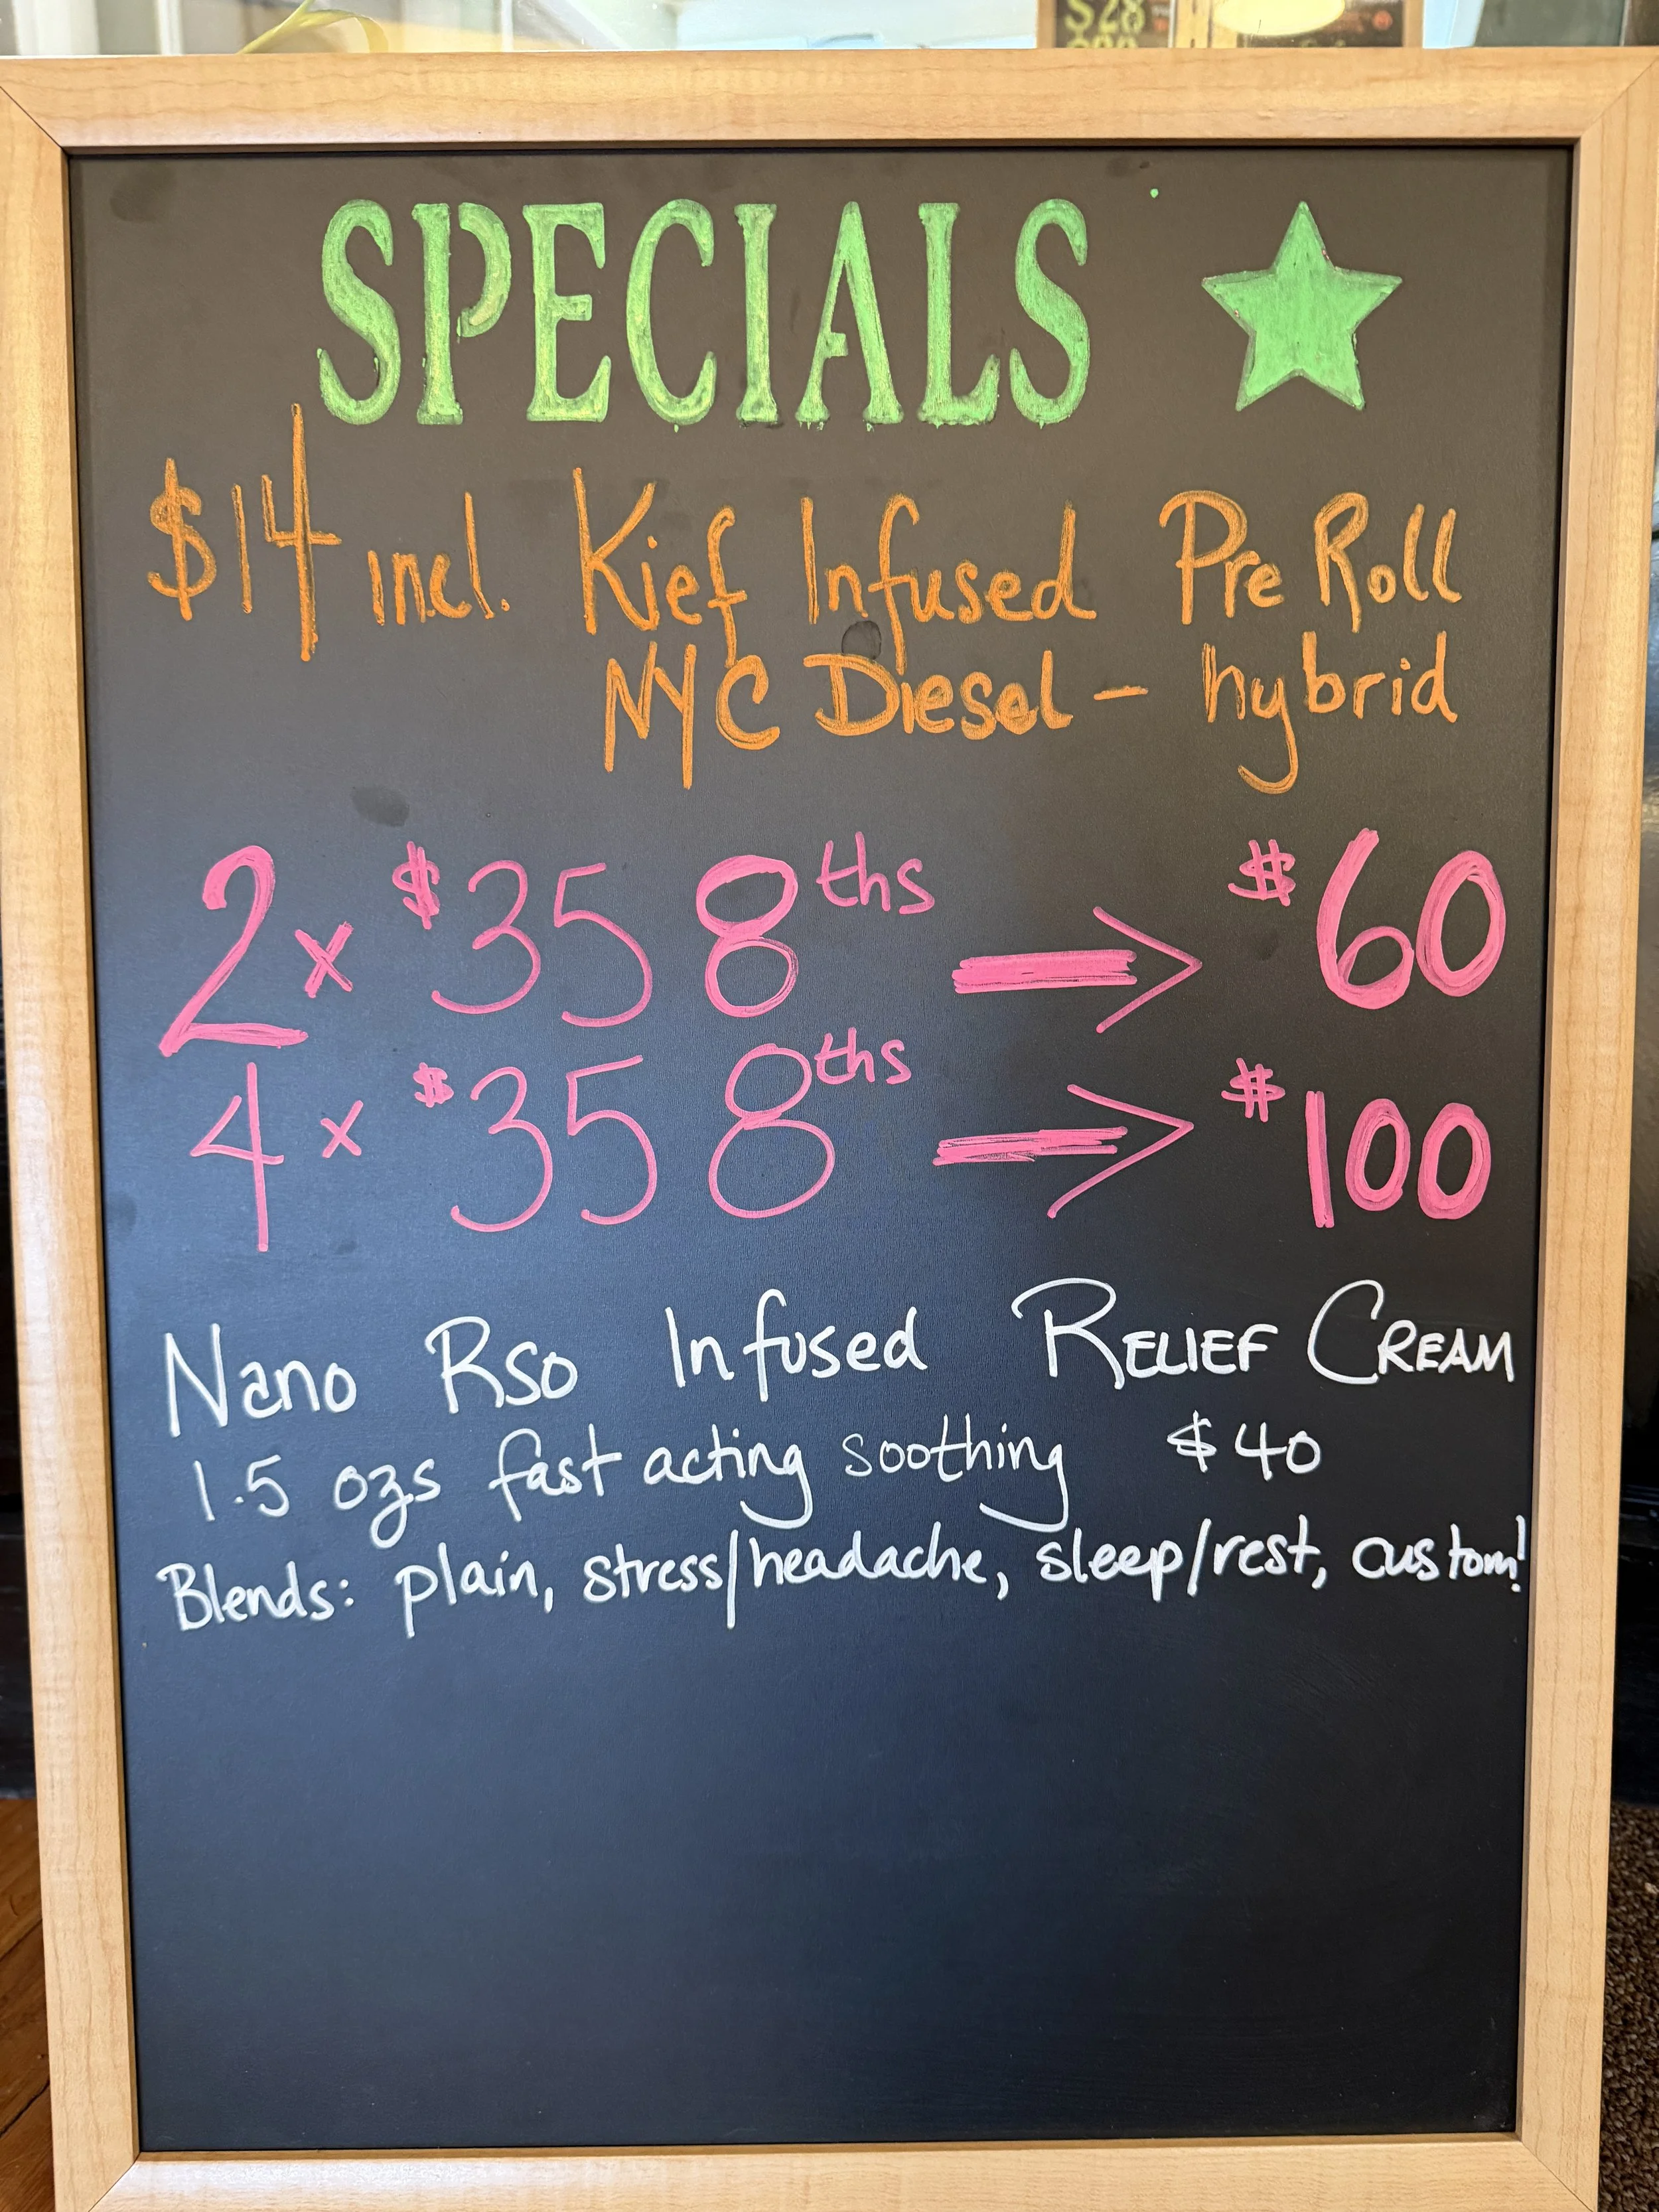 $28
SPECIALS
$14 incl. Kief Infused Pre Roll
NYC Diesel - hybrid
2 x $35 8ths → $60
4 x $35 8ths → $100
Nano RSO Infused RELIEF CREAM
1.5 ozs fast acting soothing $40
Blends: plain, stress/headache, sleep/rest, custom!